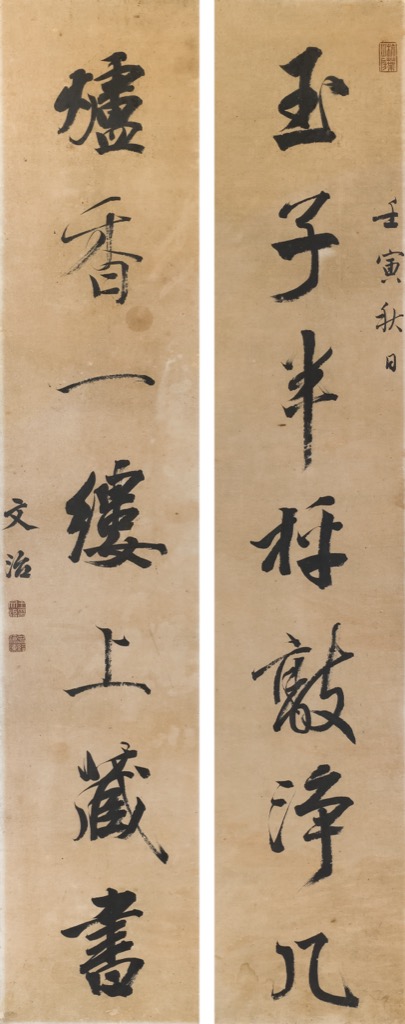 壬寅秋日
玉子半枰敲淨几
爐香一縷上藏書
文治